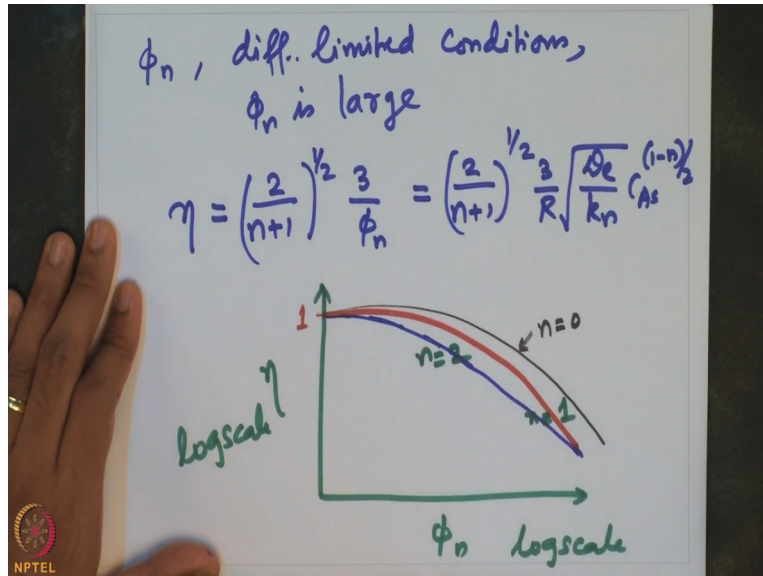 ϕn, diff.. limited conditions,
ϕn is large
η = (2/n+1)^1/2 3/ϕn = (2/n+1)^1/2 3/R √(De/kn) CAs^(1-n)/2
1
n=0
n=2
n=1
η
logscale
ϕn logscale
NPTEL